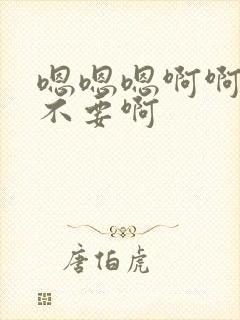 嗯嗯嗯啊啊
不要啊
唐伯虎